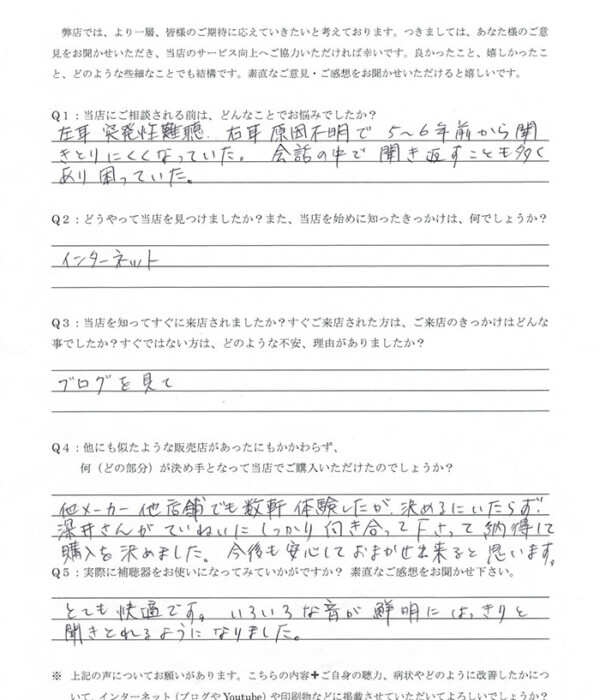 弊店では、より一層、皆様のご期待に応えていきたいと考えております。つきましては、あなた様のご意
見をお聞かせいただき、当店のサービス向上へご協力いただければ幸いです。良かったこと、嬉しかったこ
と、どのような些細なことでも結構です。素直なご意見・ご感想をお聞かせいただけると嬉しいです。
Q1：当店にご相談される前は、どんなことでお悩みでしたか？
左耳 突発性難聴 右耳 原因不明で 5〜6年前から聞
きとりにくくなっていた。 会話の中で 聞き返すことも多く
あり 困っていた。
Q2：どうやって当店を見つけましたか？また、当店を始めに知ったきっかけは、何でしょうか？
インターネット
Q3：当店を知ってすぐに来店されましたか？すぐご来店された方は、ご来店のきっかけはどんな
事でしたか？すぐではない方は、どのような不安、理由がありましたか？
ブログを見て
Q4：他にも似たような販売店があったにもかかわらず、
何（どの部分）が決め手となって当店でご購入いただけたのでしょうか？
他メーカー 他店舗でも数軒 体験したが、決めるにいたらず！
深井さんがていねいにしっかり付き合って下さって 納得して
購入を決めました。今後も安心しておまかせ出来ると思います。
Q5：実際に補聴器をお使いになってみていかがですか？ 素直なご感想をお聞かせ下さい。
とても快適です。いろいろな音が鮮明にはっきりと
聞きとれるようになりました。
※ 上記の声についてお願いがあります。こちらの内容＋ご自身の聴力、病状やどのように改善したかにつ
いて、インターネット（ブログやYoutube）や印刷物などに掲載させていただいてよろしいでしょうか？